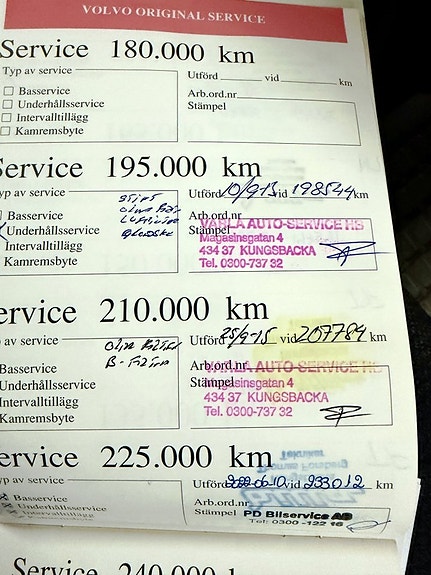 VOLVO ORIGINAL SERVICE
Service 180.000 km
Typ av service
Utförd vid km
Basservice
Underhållsservice
Intervalltillägg
Kamremsbyte
Arb.ord.nr
Stämpel
Service 195.000 km
yp av service
Utförd 10/9-13 vid 198544 km
Basservice
Underhållsservice
Intervalltillägg
Kamremsbyte
olja
Arb.ord.nr
Stämpel
VARLA AUTO-SERVICE HB
Magasinsgatan 4
434 37 KUNGSBACKA
Tel. 0300-737 32
ervice 210.000 km
av service
Utförd 25/9-15 vid 207784 km
Basservice
Underhållsservice
Intervalltillägg
Kamremsbyte
olja
B-Filter
Arb.ord.nr
Stämpel
VARLA AUTO-SERVICE HB
Magasinsgatan 4
434 37 KUNGSBACKA
Tel. 0300-737 32
ervice 225.000 km
av service
Utförd vid 233012 km
Basservice
Underhållsservice
Intervalltillägg
Arb.ord.nr
Stämpel
PD Bilservice AB
Tel: 0300-122 16
Service 240.000 km